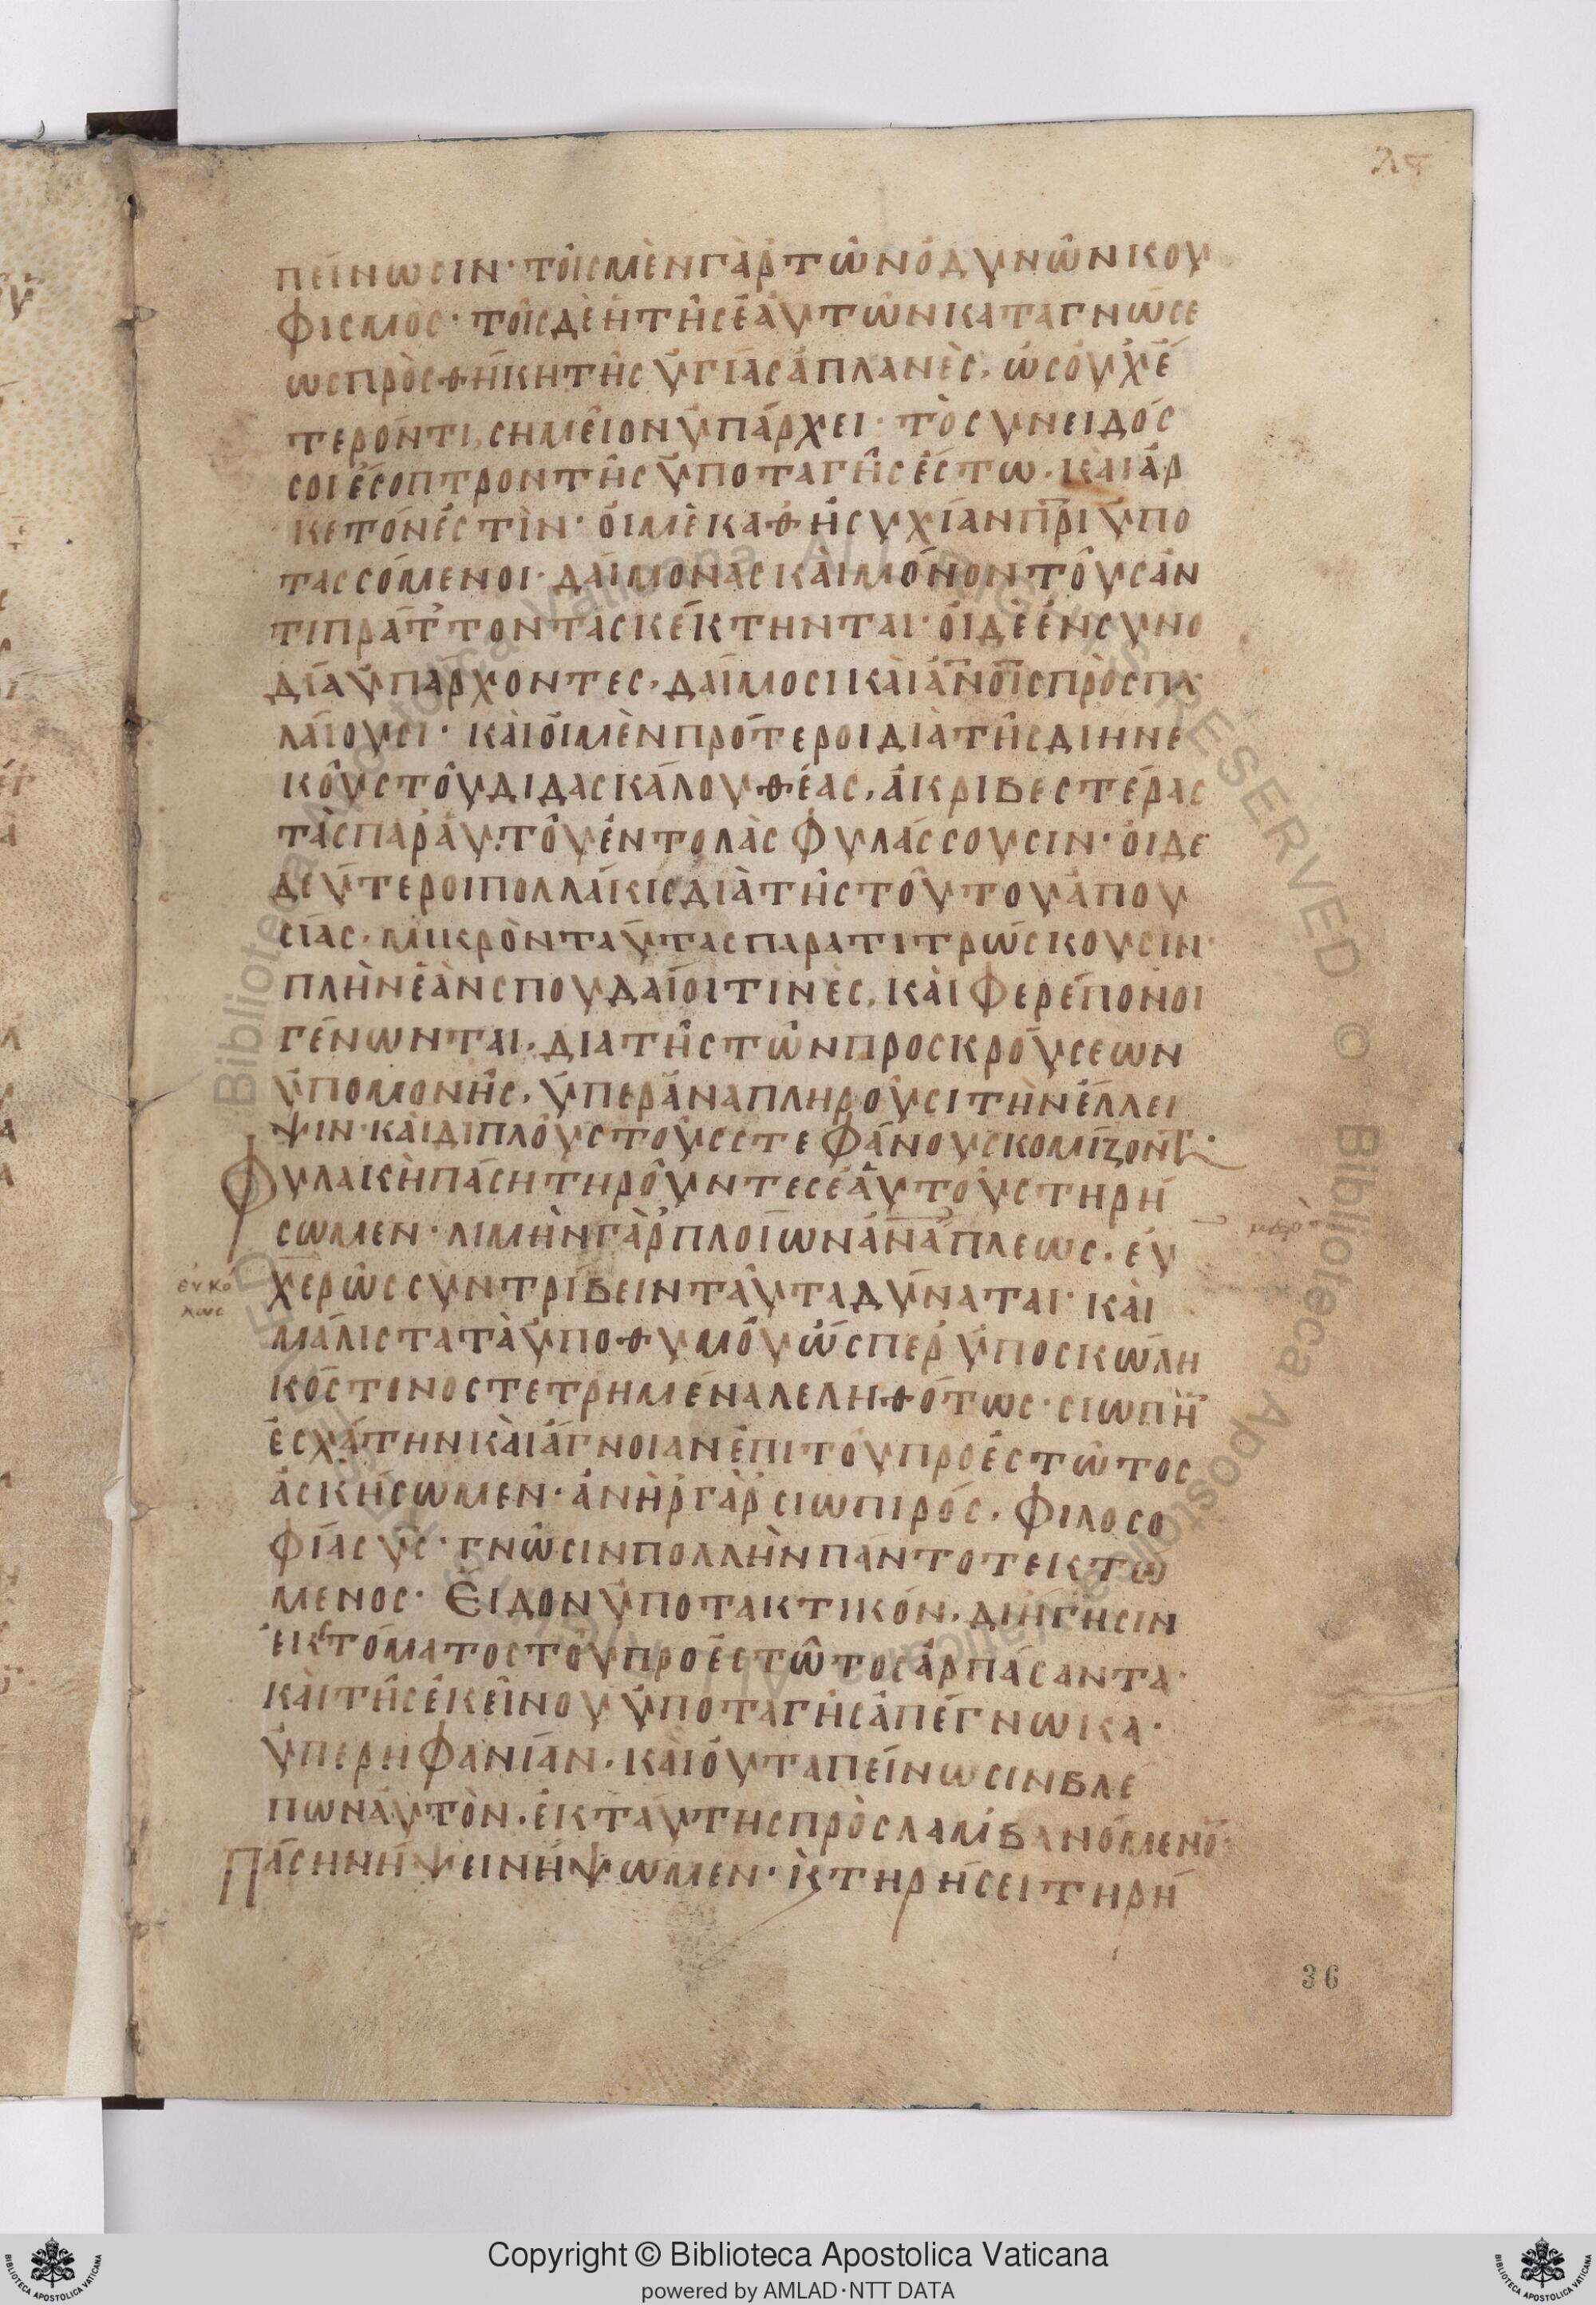 λϛ
πείνωσιν· τοῖς μὲν γὰρ τῶν ὀδυνῶν κου
φισμὸς· τοῖς δὲ ἡ τῆς ἑαυτῶν καταγνώσε
ως προσθήκη τῆς ὑγίας ἀπλανὲς, ὡς οὐχ ἕ
τερόν τι, σημεῖον ὑπάρχει· τὸ συνειδός
σοι ἔσοπτρον τῆς ὑποταγῆς ἔστω, καὶ ἀρ
κετόν ἐστὶν· οἱ μὲ καθ ἡσυχίαν πρι ὑπο
τασσόμενοι· δαίμονας καὶ μόνον τοὺς ἀν
τιπράττοντας κέκτηνται· οἱ δὲ ἐν συνο
δία ὑπάρχοντες, δαίμοσι καὶ ἀνοις προσπα
λαίουσι· καὶ οἱ μὲν πρότεροι διὰ τῆς διηνε
κοῦς τοῦ διδασκάλου θέας, ἀκριβεστέρας
τὰς παρ αυτοῦ ἐντολὰς φυλάσσουσιν· οἱ δε
δεύτεροι πολλάκις διὰ τῆς τούτου ἀπου
σίας, μικρὸν ταύτας παρατιτρώσκουσιν·
πλὴν ἐὰν σπουδαῖοι τινὲς, καὶ φερέπονοι
γένωνται, διὰ τῆς τῶν προσκρούσεων
ὑπομονῆς, ὑπεραναπληροῦσι τὴν ἔλλει
ψιν· καὶ διπλοῦς τοὺς στεφάνους κομίζοντ·
Φυλακὴ πάση τηροῦντες ἑαυτοὺς τηρή
σωμεν· λιμὴν γὰρ πλοίων ἀνάπλεως, εὐ
χερῶς συντρίβειν ταῦτα δύναται· καὶ
εὐκό
λως
μάλιστα τὰ ὑπο θυμοῦ ὥσπερ ὑπο σκώλη
κός τινος τετρημένα λεληθότως· σιωπὴ
ἐσχάτην καὶ ἄγνοιαν ἐπι τοῦ προεστῶτος
ἀσκήσωμεν· ἀνὴρ γὰρ σιωπιρός, φιλοσο
φίας υς· γνῶσιν πολλὴν πάντοτε κτώ
μενος· Εἶδον ὑποτακτικόν, διήγησιν
ἐκ στόματος τοῦ προεστῶτος ἁρπάσαντα·
καὶ τῆς ἐκείνου ὑποταγῆς ἀπέγνωκα·
ὑπερηφανίαν, καὶ οὐ ταπείνωσιν βλέ
πων αυτὸν, ἐκ ταύτης προσλαμβανόμενο·
Πάση νήψει νήψωμεν· κ τηρήσει τηρή
36
Copyright © Biblioteca Apostolica Vaticana
powered by AMLAD·NTT DATA